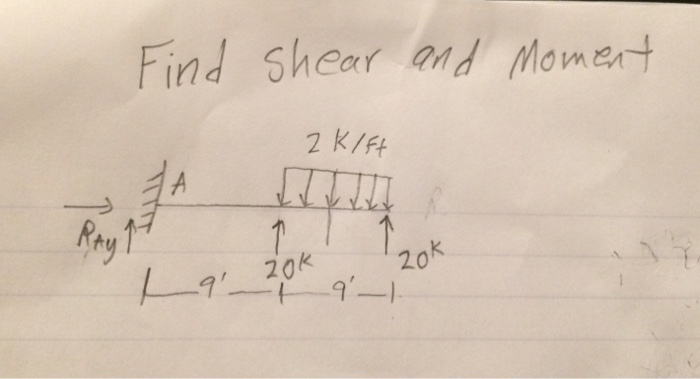 Find Shear and Moment
2 K/Ft
A
RAy
20K
20K
9'
9'